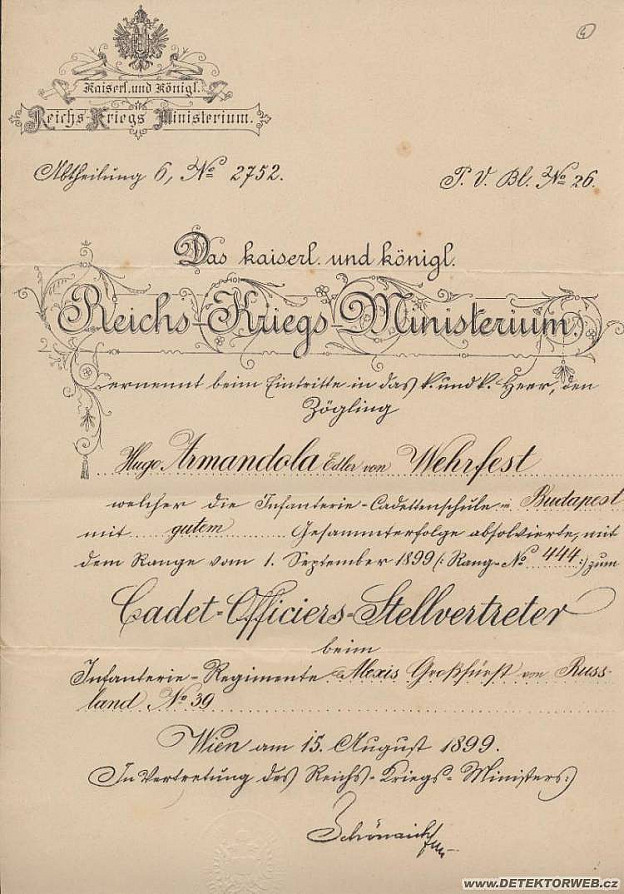 Kaiserl. und Königl.
Reichs-Kriegs-Ministerium.
Abtheilung 6, No 2752.
P. V. Bl. No 26.
Das kaiserl. und königl.
Reichs-Kriegs-Ministerium.
ernennt beim Eintritte in das k. und k. Heer, den
Zögling
Hugo Armandola Edler von Wehrfest
welcher die Infanterie-Cadettenschule in Budapest
mit gutem Gesammterfolge absolvierte, mit
dem Range vom 1. September 1899 (: Rang-No 444 :) zum
Cadet-Officiers-Stellvertreter
beim
Infanterie-Regimente Alexis Großfürst von Russ-
land No 39
Wien am 15. August 1899.
(In Vertretung des Reichs-Kriegs-Ministers:)
Schönaich
www.DETEKTORWEB.cz